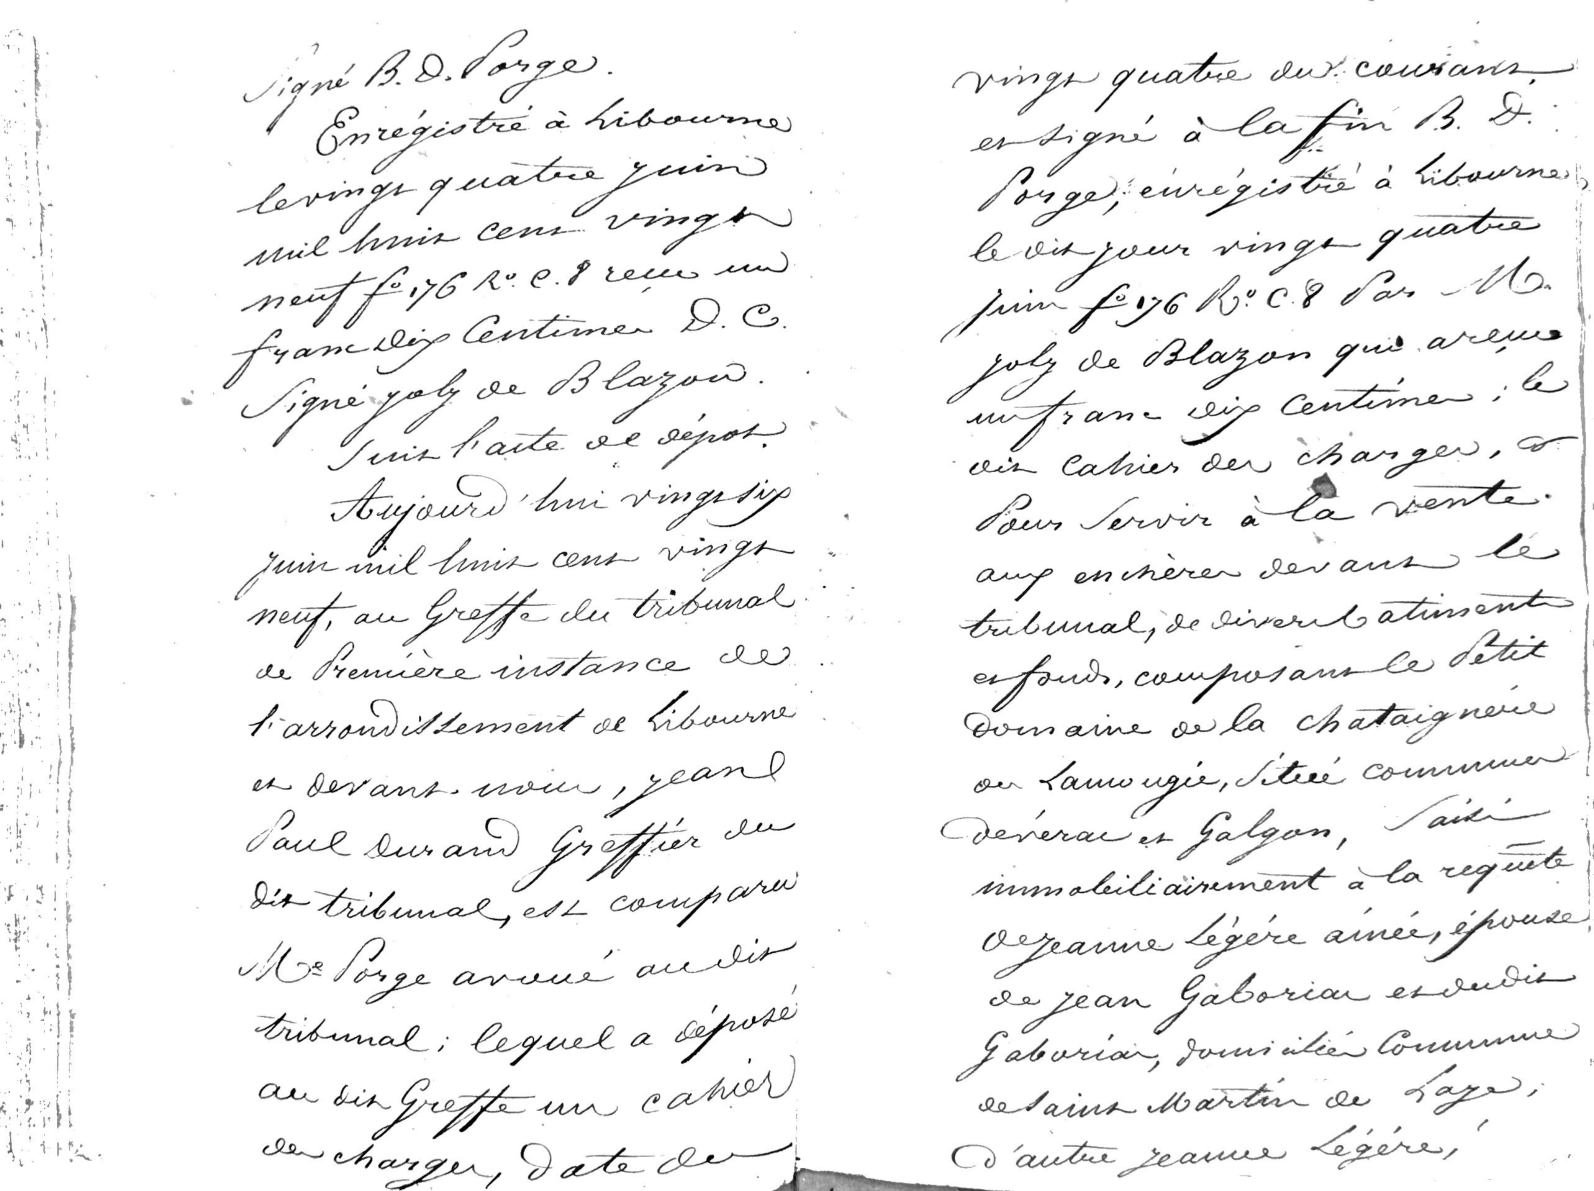 Signé B. D. Porge.
Enrégistré à Libourne
le vingt quatre juin
mil huit cent vingt
neuf f° 176 R°. C. 8 reçu un
franc dix Centimes D. C.
Signé joly de Blazon.
Suit l'acte de dépot.
Aujourd'hui vingt six
juin mil huit cent vingt
neuf, au Greffe du tribunal
de Première instance de
l'arrondissement de Libourne
et devant nous, jean
Paul Durand Greffier du
dit tribunal, est comparu
Me Porge avoué au dit
tribunal; lequel a déposé
au dit Greffe un cahier
des charges, date du
vingt quatre du courant,
et signé à la fin B. D.
Porge, enrégistré à Libourne
le dit jour vingt quatre
juin f° 176 R°. C. 8 Par M.
joly de Blazon qui a reçu
un franc dix Centimes; le
dit Cahier des charges, &
Pour Servir à la vente
aux enchères devant le
tribunal, de divers batiments
et fonds, composant le Petit
domaine de la chataignérie
ou Lamougie, Situé communes
de vérac et Galgon, Saisi
immobiliairement à la requête
de jeanne Légére ainée, épouse
de jean Gaboriau et dudit
Gaboriau, domiciliés Commune
de Saint Martin de Laye;
d'autre jeanne Légére,